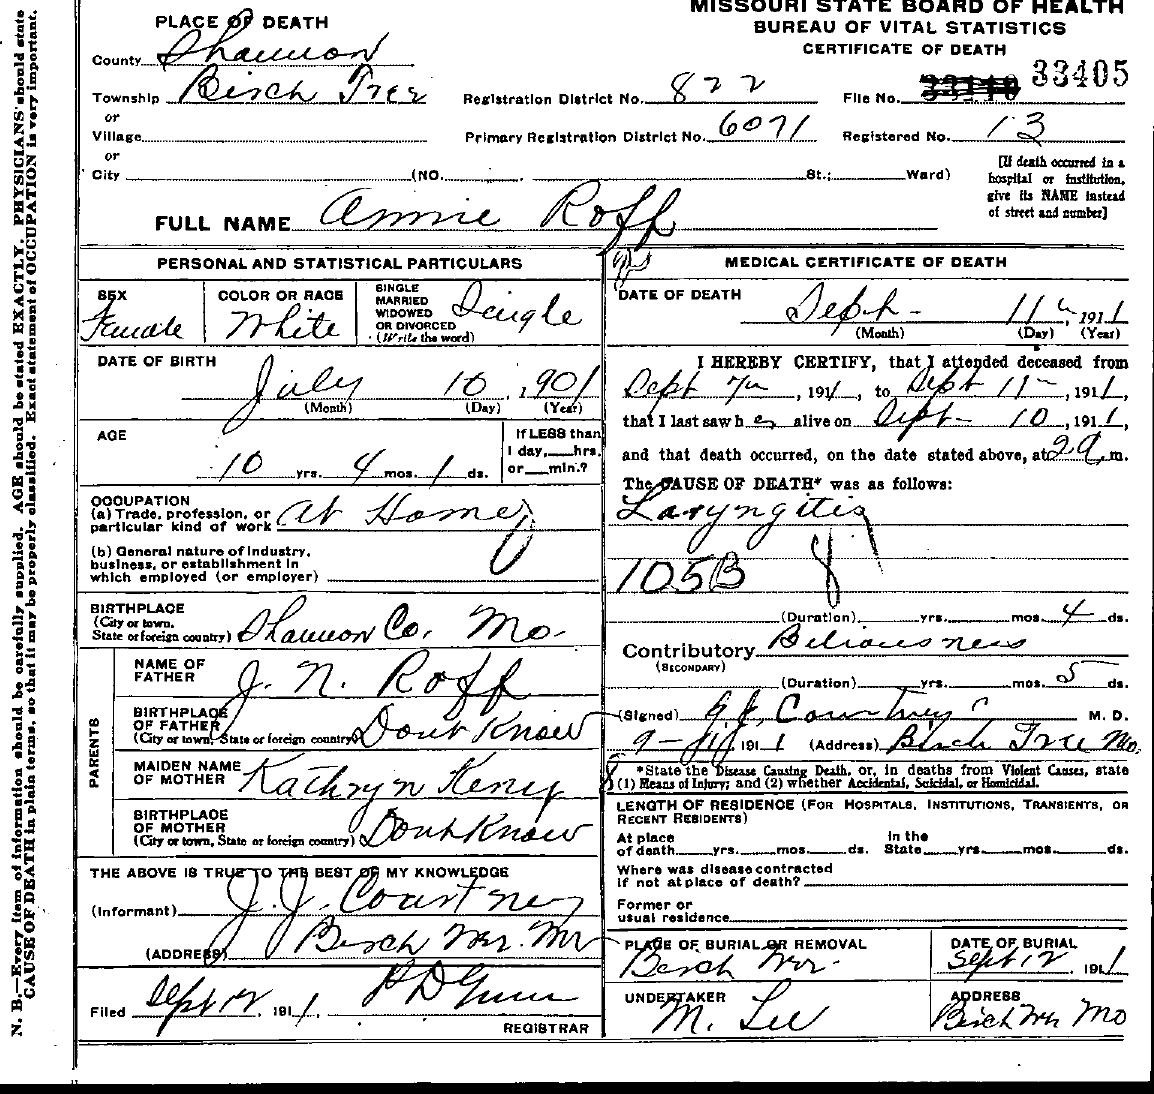 MISSOURI STATE BOARD OF HEALTH
BUREAU OF VITAL STATISTICS
CERTIFICATE OF DEATH
PLACE OF DEATH
County Shannon
Township Birch Tree
or
Village
or
City (NO. , St.; Ward)
Registration District No. 822
Primary Registration District No. 6071
File No. 33405
Registered No. 13
[If death occurred in a
hospital or institution,
give its NAME instead
of street and number]
FULL NAME Annie Roff
PERSONAL AND STATISTICAL PARTICULARS
SEX
Female
COLOR OR RACE
White
SINGLE
MARRIED
WIDOWED
OR DIVORCED
(Write the word)
Single
DATE OF BIRTH
July 10, 1901
(Month) (Day) (Year)
AGE
10 yrs. 4 mos. 1 ds.
If LESS than
1 day, hrs.
or min.?
OCCUPATION
(a) Trade, profession, or
particular kind of work At Home
(b) General nature of industry,
business, or establishment in
which employed (or employer)
BIRTHPLACE
(City or town,
State or foreign country) Shannon Co. Mo.
PARENTS
NAME OF
FATHER J. N. Roff
BIRTHPLACE
OF FATHER
(City or town, State or foreign country) Dont Know
MAIDEN NAME
OF MOTHER Kathryn
BIRTHPLACE
OF MOTHER
(City or town, State or foreign country) Dont Know
THE ABOVE IS TRUE TO THE BEST OF MY KNOWLEDGE
(Informant) J. J. Courtney
(ADDRESS) Birch Tree. Mo
Filed Sept 12, 1911, REGISTRAR
MEDICAL CERTIFICATE OF DEATH
DATE OF DEATH
Sept - 11, 1911
(Month) (Day) (Year)
I HEREBY CERTIFY, that I attended deceased from
Sept 7th, 1911, to Sept 11th, 1911,
that I last saw her alive on Sept 10, 1911,
and that death occurred, on the date stated above, at 2 a.m.
The CAUSE OF DEATH* was as follows:
Laryngitis
105B
(Duration) yrs. mos. 4 ds.
Contributory Biliousness
(SECONDARY)
(Duration) yrs. mos. 5 ds.
(Signed) Courtney M. D.
9-11, 1911 (Address) Birch Tree Mo.
*State the Disease Causing Death, or, in deaths from Violent Causes, state
(1) Means of Injury; and (2) whether Accidental, Suicidal, or Homicidal.
LENGTH OF RESIDENCE (FOR HOSPITALS, INSTITUTIONS, TRANSIENTS, OR
RECENT RESIDENTS)
At place
of death yrs. mos. ds.
In the
State yrs. mos. ds.
Where was disease contracted
if not at place of death?
Former or
usual residence
PLACE OF BURIAL OR REMOVAL
Birch Tree.
DATE OF BURIAL
Sept 12, 1911
UNDERTAKER
M. Lee
ADDRESS
Birch Tree Mo
N. B.—Every item of information should be carefully supplied. AGE should be stated EXACTLY. PHYSICIANS should state
CAUSE OF DEATH in plain terms, so that it may be properly classified. Exact statement of OCCUPATION is very important.